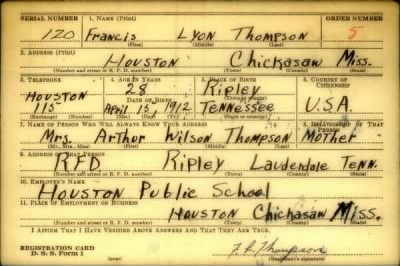 SERIAL NUMBER 1. NAME (Print) ORDER NUMBER
120 Francis Lyon Thompson 5
(First) (Middle) (Last)
2. ADDRESS (Print)
Houston Chickasaw Miss.
(Number and street or R. F. D. number) (Town) (County) (State)
3. TELEPHONE 4. AGE IN YEARS 5. PLACE OF BIRTH 6. COUNTRY OF CITIZENSHIP
28 Ripley
Houston DATE OF BIRTH (Town or county)
115 April 15, 1912 Tennessee U.S.A.
(Exchange) (Number) (Mo.) (Day) (Yr.) (State or country)
7. NAME OF PERSON WHO WILL ALWAYS KNOW YOUR ADDRESS 8. RELATIONSHIP OF THAT PERSON
Mrs. Arthur Wilson Thompson Mother
(Mr., Mrs., Miss) (First) (Middle) (Last)
9. ADDRESS OF THAT PERSON
RFD Ripley Lauderdale Tenn.
(Number and street or R. F. D. number) (Town) (County) (State)
10. EMPLOYER'S NAME
Houston Public School
11. PLACE OF EMPLOYMENT OR BUSINESS
Houston Chickasaw Miss.
(Number and street or R. F. D. number) (Town) (County) (State)
I AFFIRM THAT I HAVE VERIFIED ABOVE ANSWERS AND THAT THEY ARE TRUE.
REGISTRATION CARD
D. S. S. Form 1 (over) (Registrant's signature)